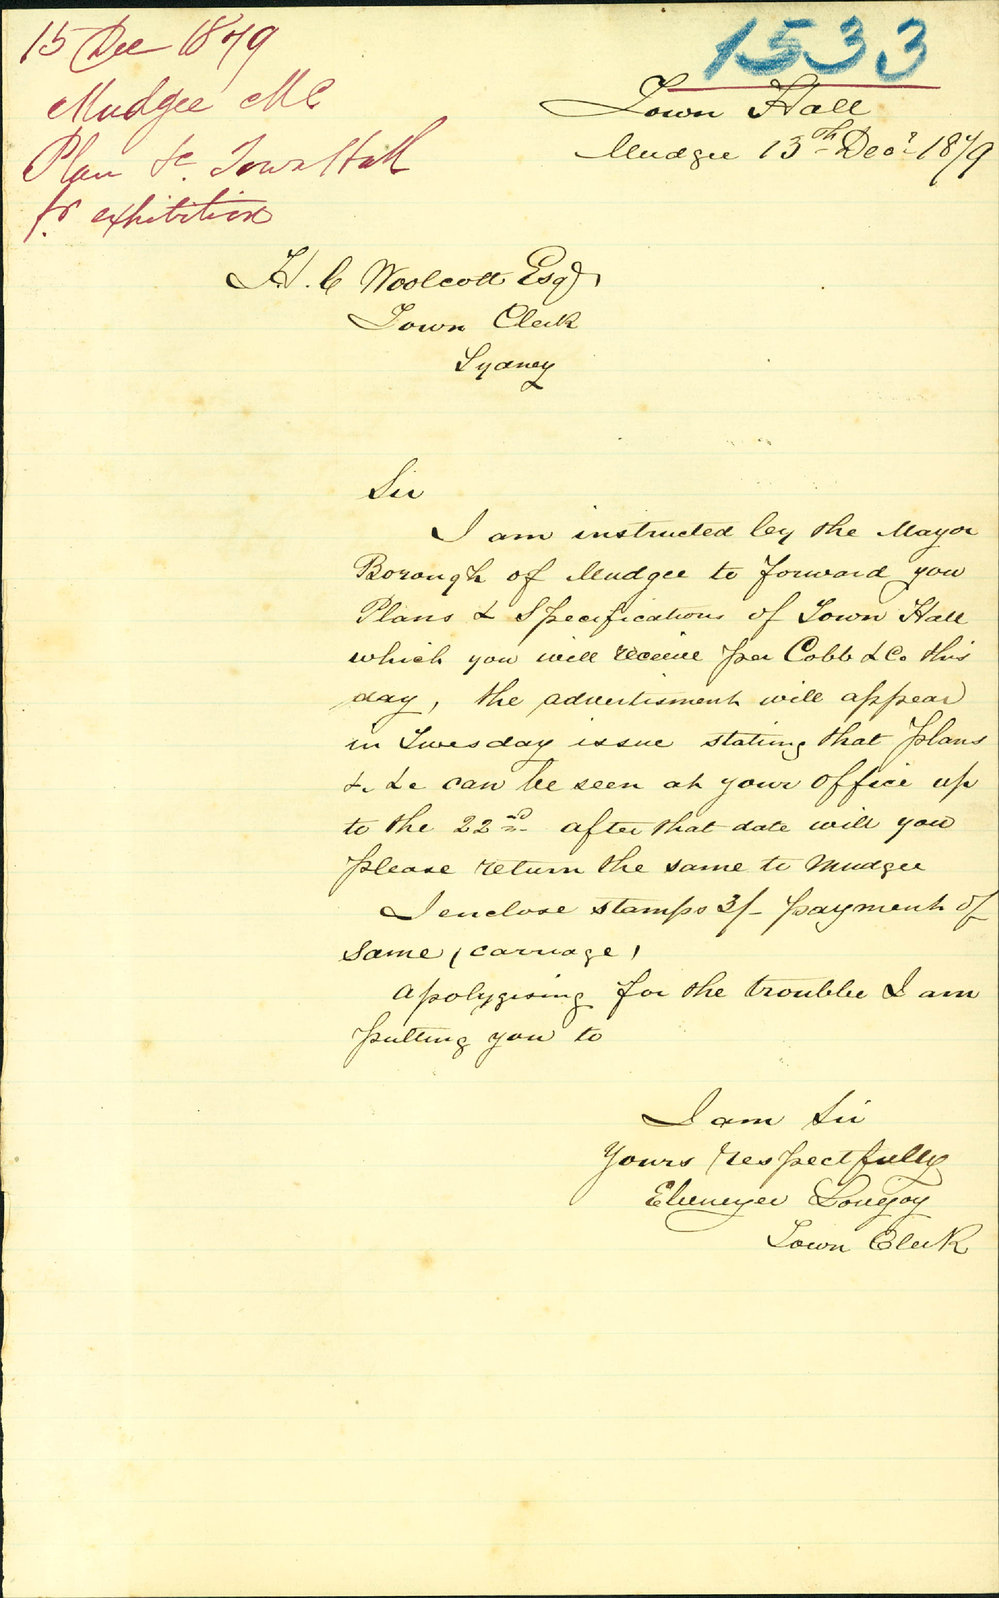 15 Dec 1879
Mudgee MC
Plan &c. Town Hall
fr exhibition
1533
Town Hall
Mudgee 13th Decr 1879
H. C Woolcott Esq,
Town Clerk
Sydney
Sir
I am instructed by the Mayor
Borough of Mudgee to forward you
Plans & Specifications of Town Hall
which you will receive per Cobb & Co this
day, the advertisment will appear
in Tuesday issue stating that plans
&c &c can be seen at your office up
to the 22nd after that date will you
please return the same to Mudgee
I enclose stamps 3/- payment of
same (carriage)
apolygising for the trouble I am
putting you to
I am Sir
Yours respectfully
Ebenezer Lovejoy
Town Clerk